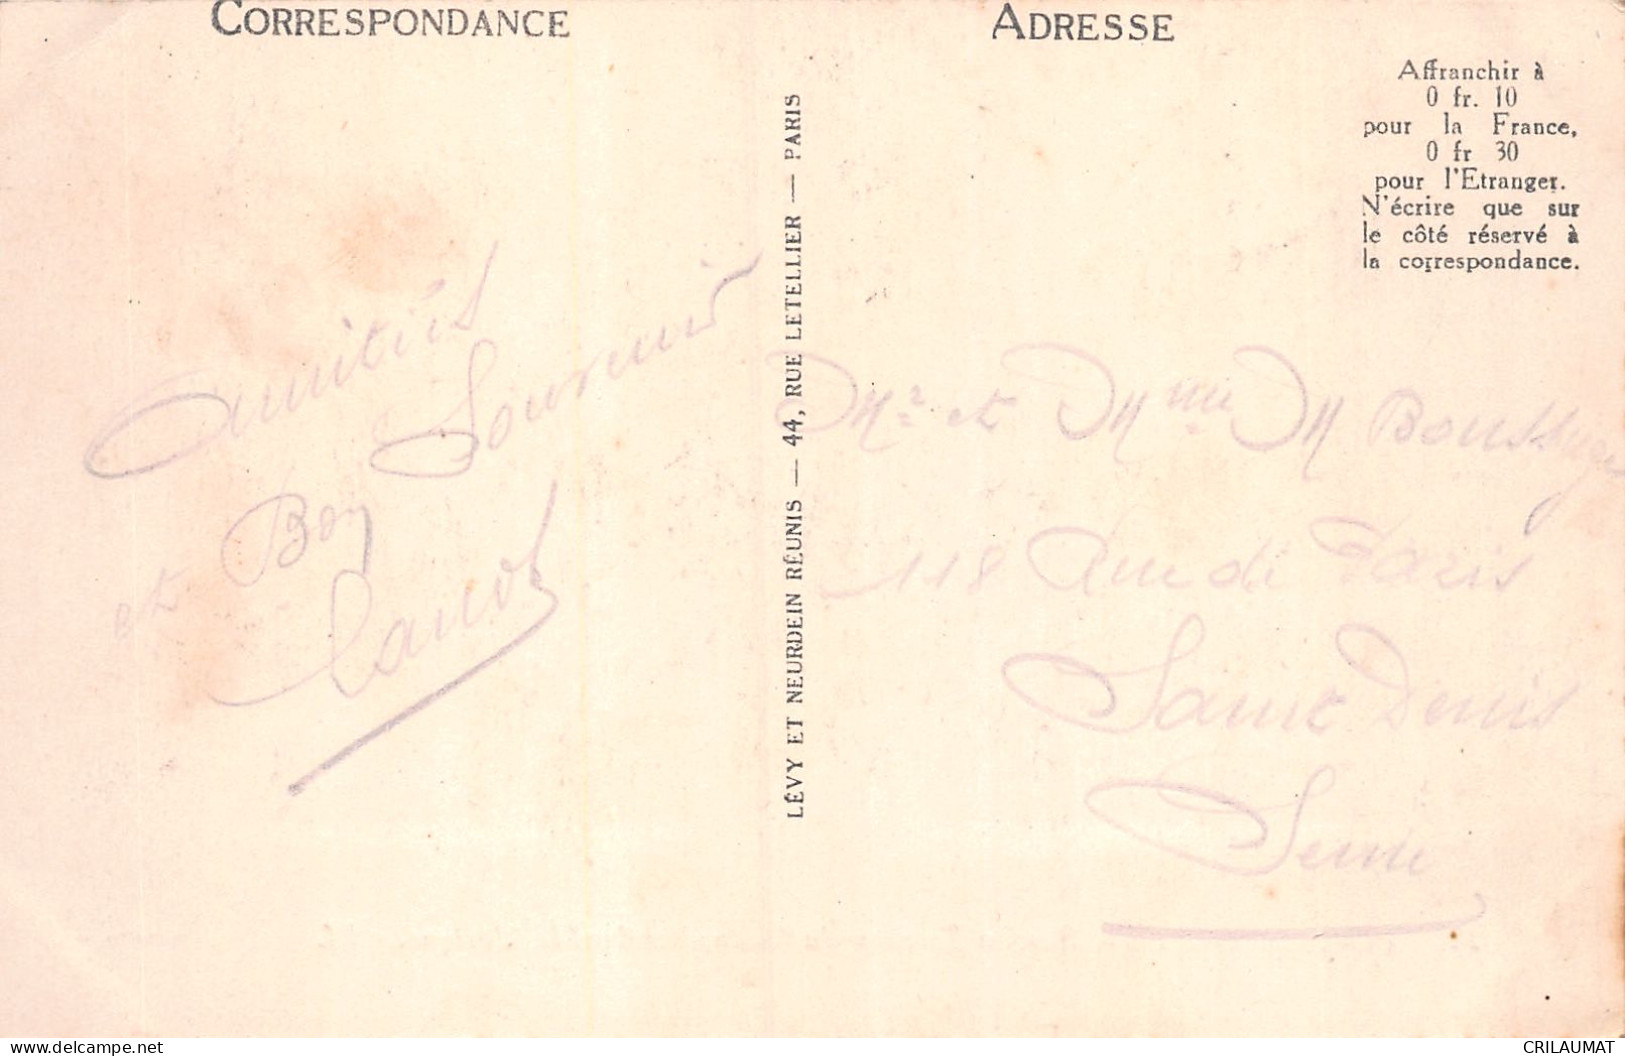 CORRESPONDANCE
ADRESSE
Affranchir à
0 fr. 10
pour la France,
0 fr 30
pour l'Etranger.
N'écrire que sur
le côté réservé à
la correspondance.
LÉVY ET NEURDEIN RÉUNIS — 44, RUE LETELLIER — PARIS
Amitiés
et Bon Souvenir
Mr et Mme
118 Rue de Paris
Saint Denis
Seine
delcampe.net
CRILAUMAT